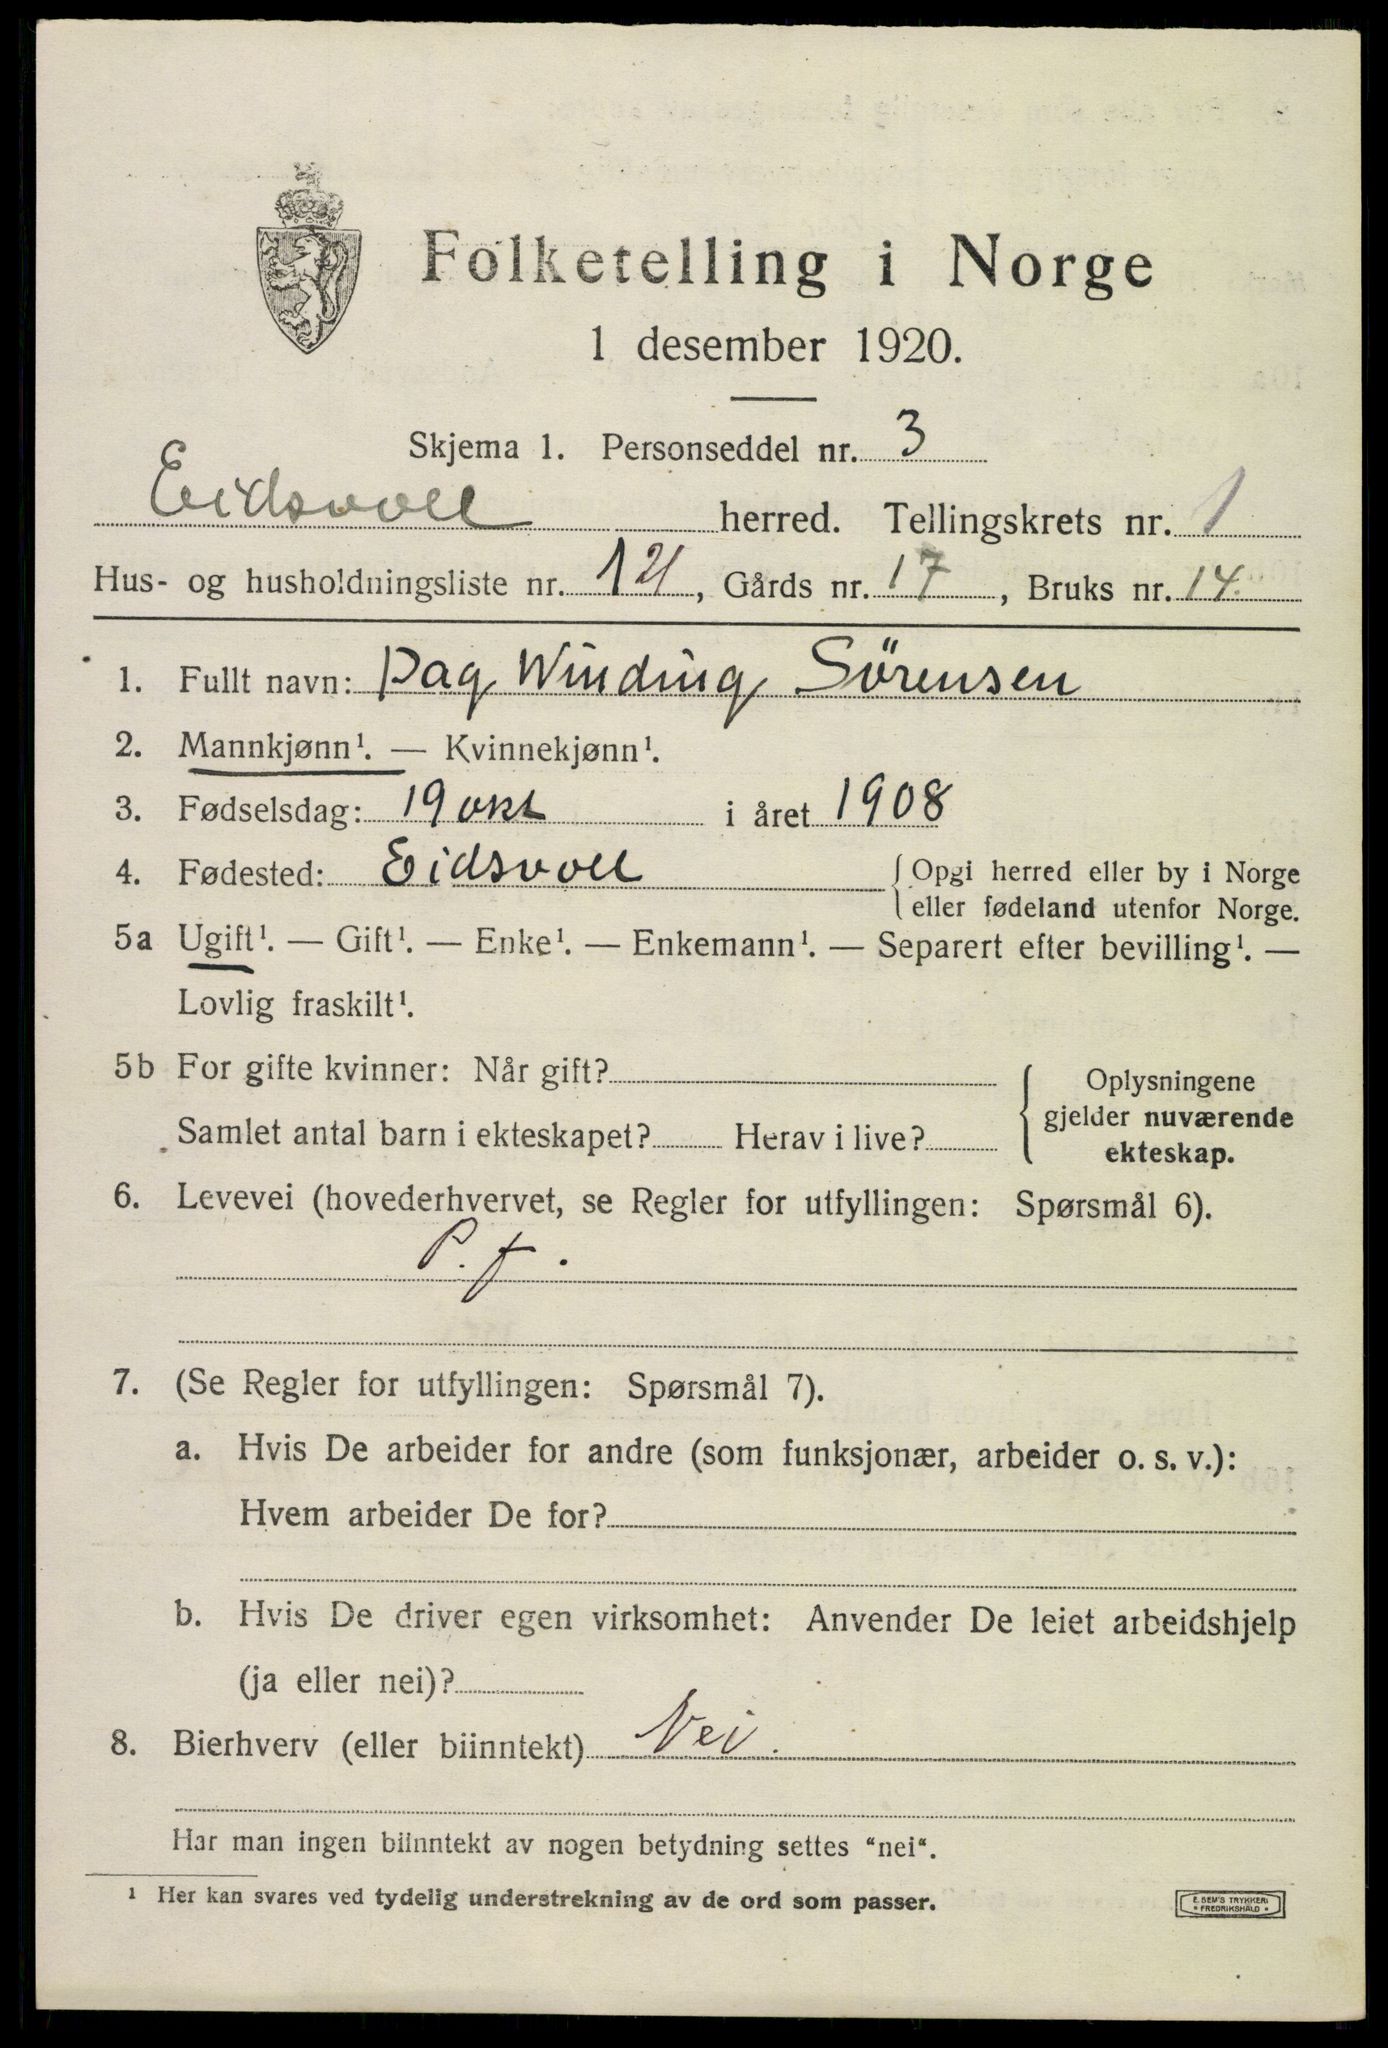 Folketelling i Norge
1 desember 1920.
Skjema 1. Personseddel nr. 3
Eidsvoll herred. Tellingskrets nr. 1
Hus- og husholdningsliste nr. 121, Gårds nr. 17, Bruks nr. 14.
1. Fullt navn: Dag Winding Sörensen
2. Mannkjønn¹. — Kvinnekjønn¹.
3. Fødselsdag: 19 okt i året 1908
4. Fødested: Eidsvoll {Opgi herred eller by i Norge
eller fødeland utenfor Norge.
5a Ugift¹. — Gift¹. — Enke¹. — Enkemann¹. — Separert efter bevilling¹. —
Lovlig fraskilt¹.
5b For gifte kvinner: Når gift?
Samlet antal barn i ekteskapet? Herav i live?
{Oplysningene
gjelder nuværende
ekteskap.
6. Levevei (hovederhvervet, se Regler for utfyllingen: Spørsmål 6).
P. f.
7. (Se Regler for utfyllingen: Spørsmål 7).
a. Hvis De arbeider for andre (som funksjonær, arbeider o. s. v.):
Hvem arbeider De for?
b. Hvis De driver egen virksomhet: Anvender De leiet arbeidshjelp
(ja eller nei)?
8. Bierhverv (eller biinntekt) Nei.
Har man ingen biinntekt av nogen betydning settes “nei“.
¹ Her kan svares ved tydelig understrekning av de ord som passer.
E. SEM'S TRYKKERI
* FREDRIKSHALD *